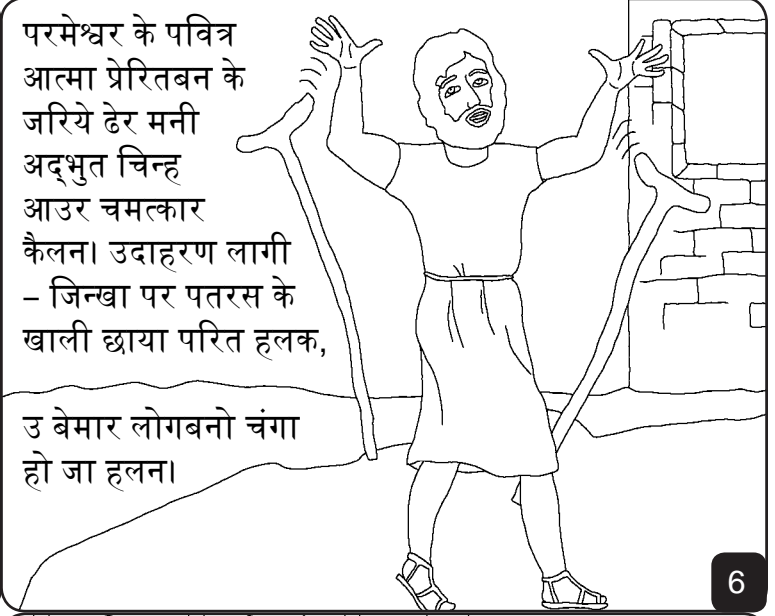 परमेश्वर के पवित्र
आत्मा प्रेरितबन के
जरिये ढेर मनी
अद्‌भुत चिन्ह
आउर चमत्कार
कैलन। उदाहरण लागी
– जिन्खा पर पतरस के
खाली छाया परित हलक,
उ बेमार लोगबनो चंगा
हो जा हलन।
6